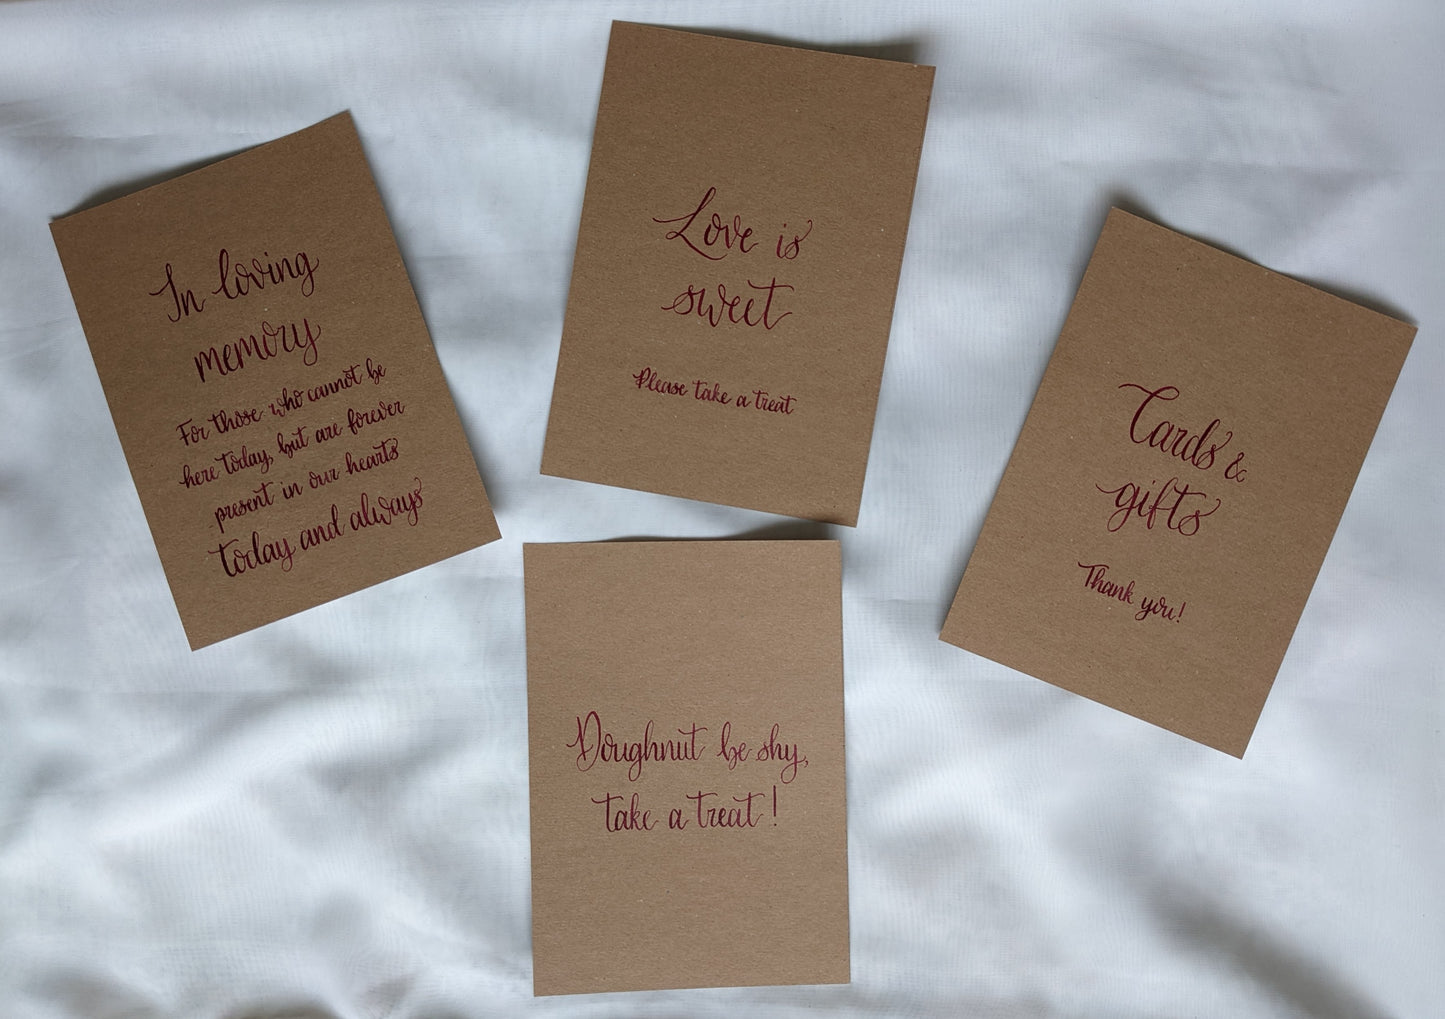 In loving
memory
For those who cannot be
here today, but are forever
present in our hearts
today and always
Love is
sweet
Please take a treat
Cards &
gifts
Thank you!
Doughnut be shy,
take a treat!